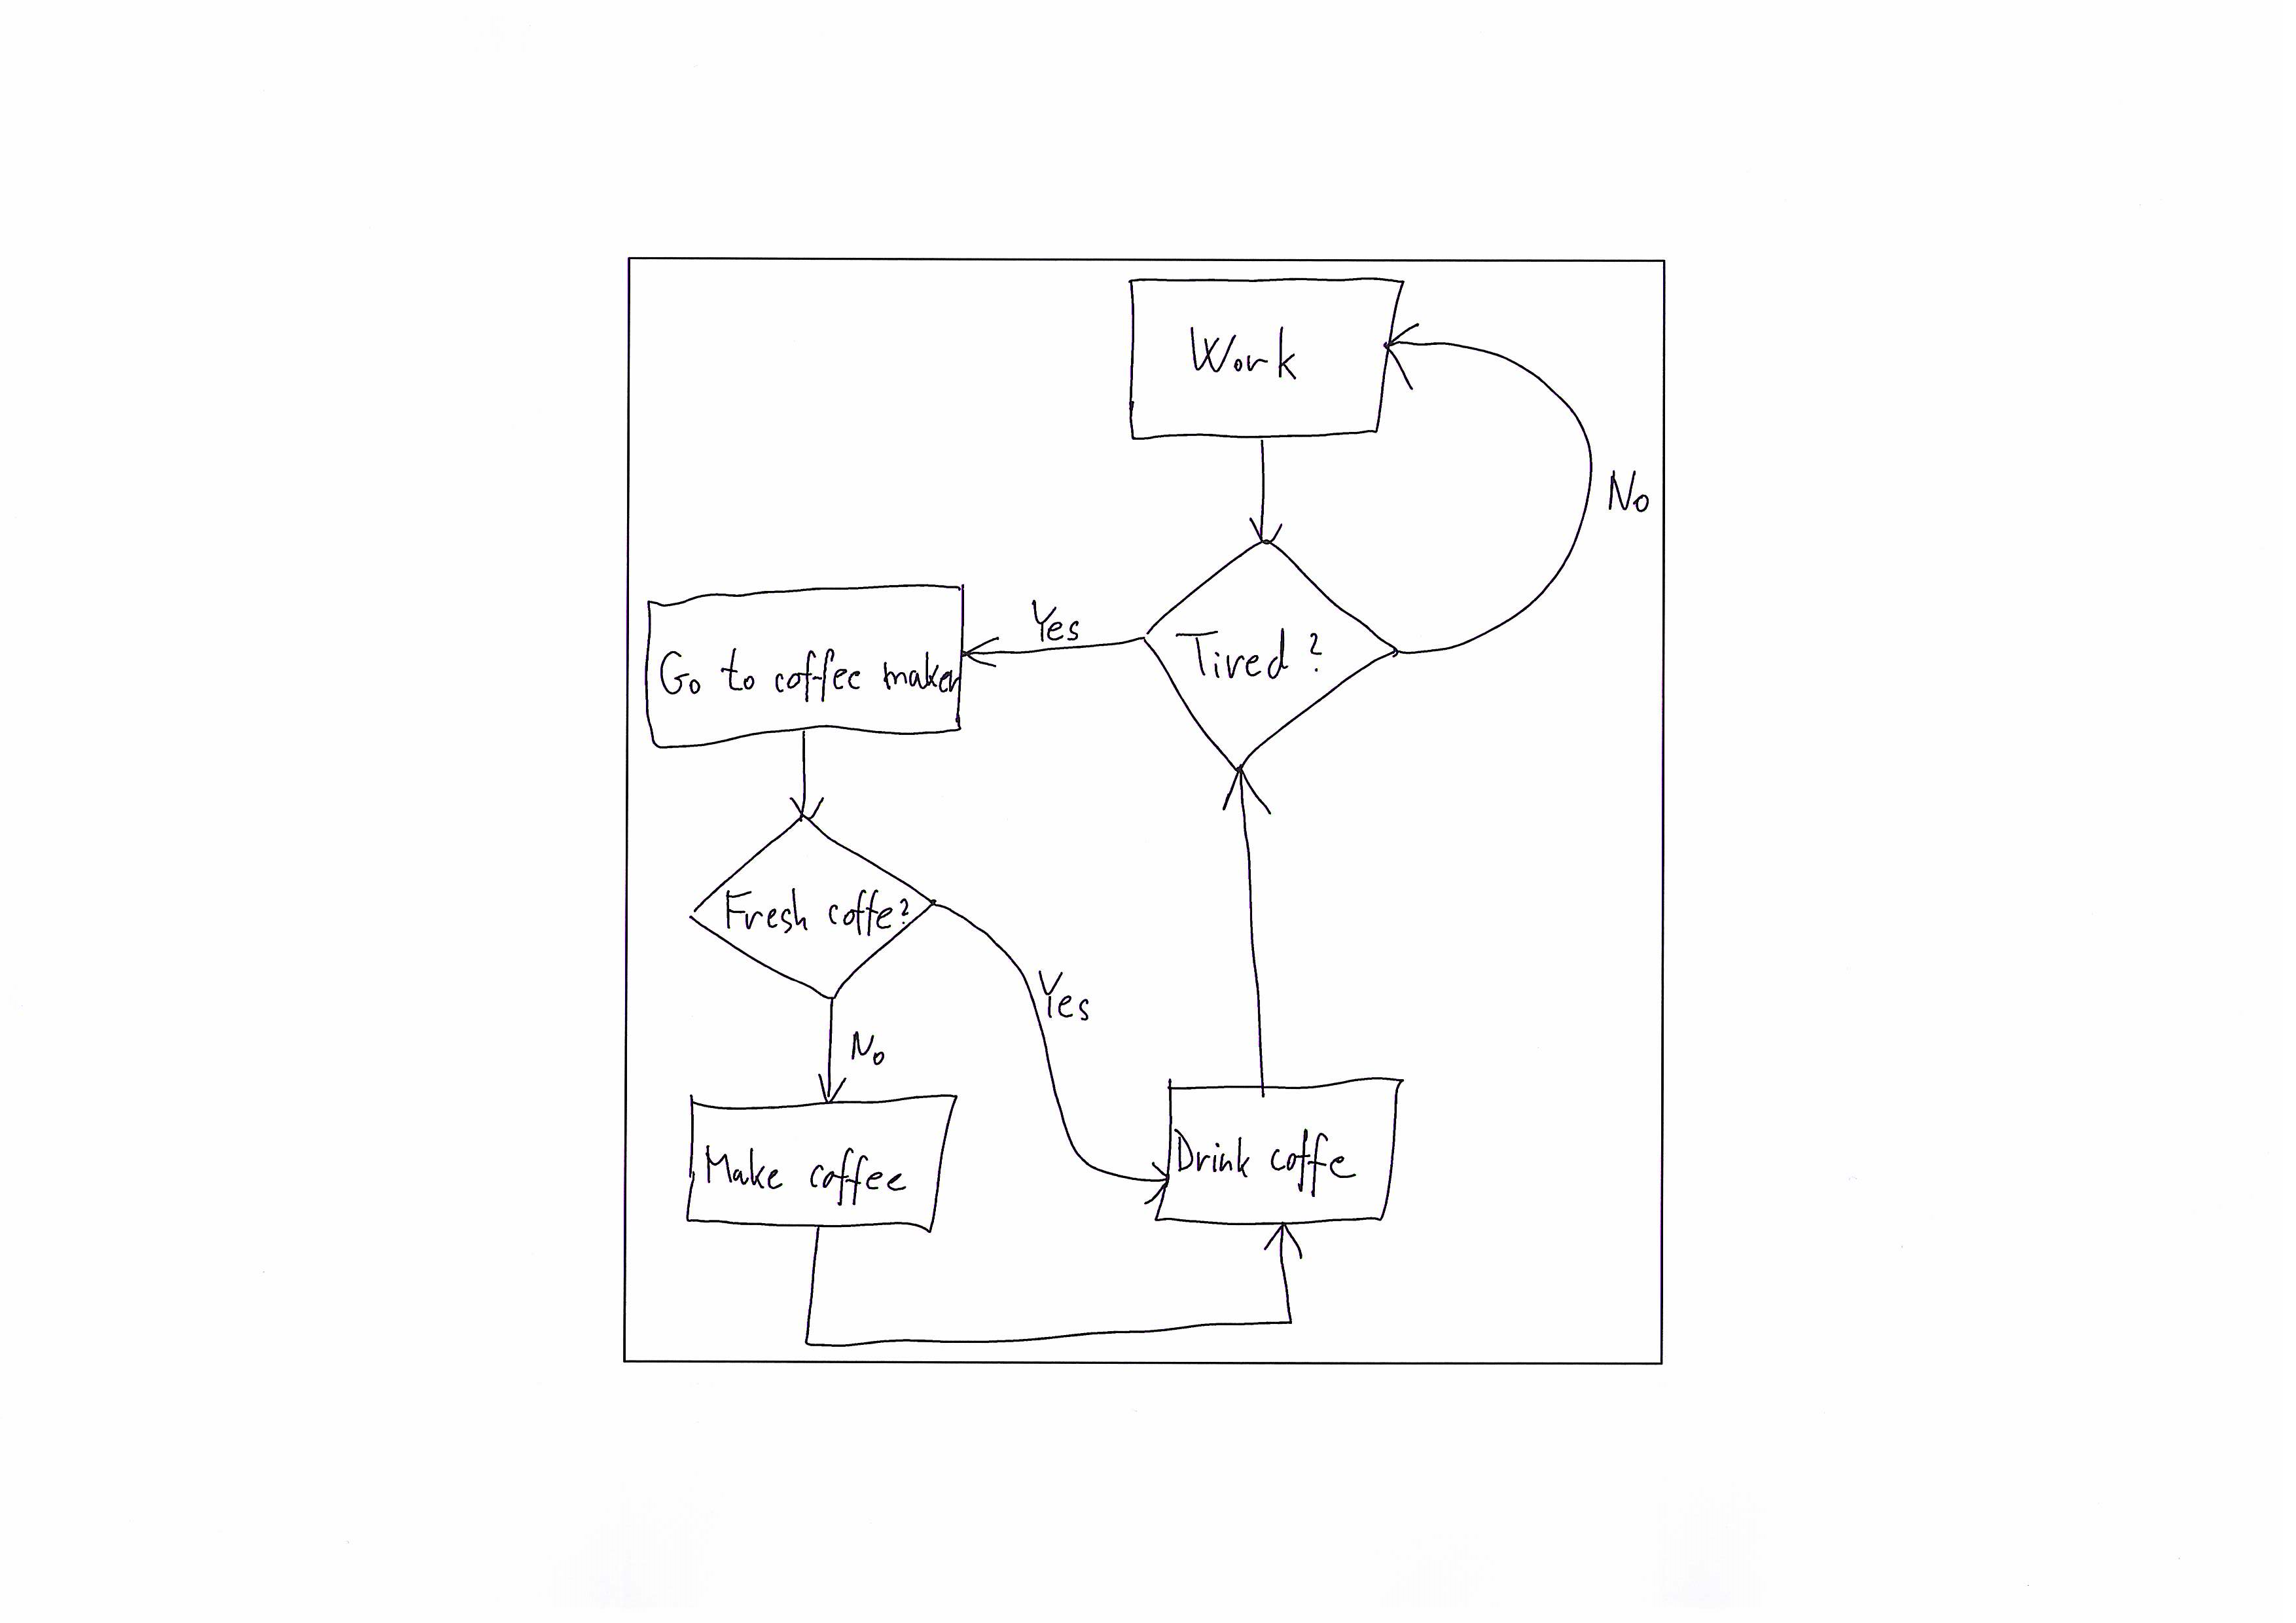 Work
No
Tired?
Yes
Go to coffee maker
Fresh coffe?
Yes
No
Make coffee
Drink coffe